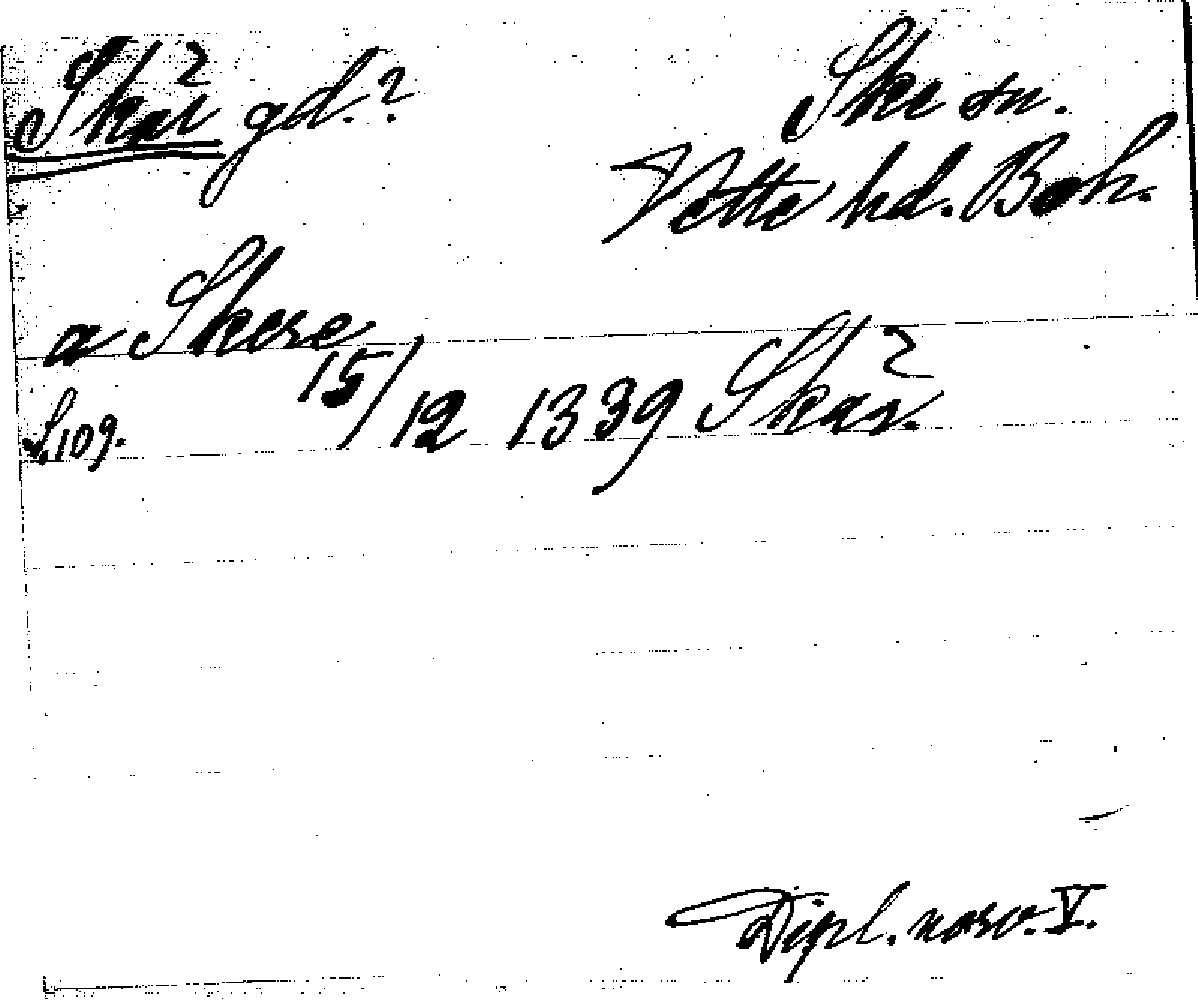 Skär gd.?
Ske sn.
Vette hd. Boh.
a Skere
S. 109. 15/12 1339 Skär.
Dipl. norv. V.